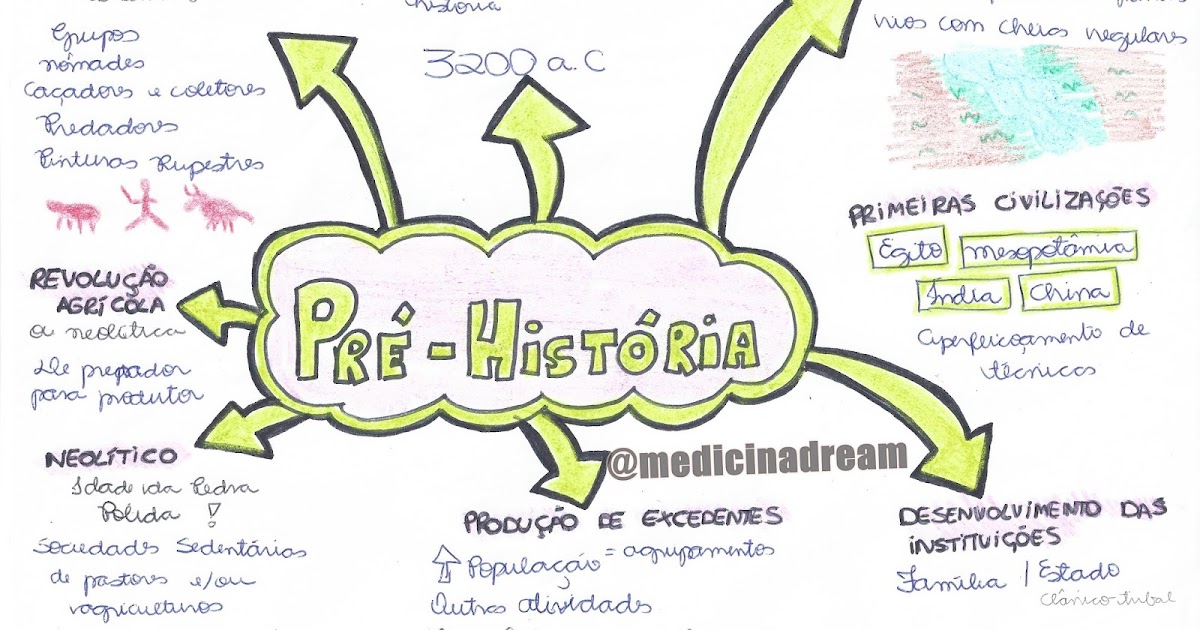 história
3200 a.C
Grupos
nômades
Caçadores e coletores
Predadores
Pinturas Rupestres
rios com cheias regulares
PRIMEIRAS CIVILIZAÇÕES
Egito
mesopotâmia
Índia
China
Aperfeiçoamento de
técnicas
REVOLUÇÃO
AGRÍCOLA
a neolítica
De prepador
para produtor
PRÉ-HISTÓRIA
@medicinadream
NEOLÍTICO
Idade da Pedra
Polida !
Sociedades Sedentárias
de pastores e/ou
agricultores
PRODUÇÃO DE EXCEDENTES
População = agrupamentos
Outras atividades
DESENVOLVIMENTO DAS
INSTITUIÇÕES
Família / Estado
clânico-tribal